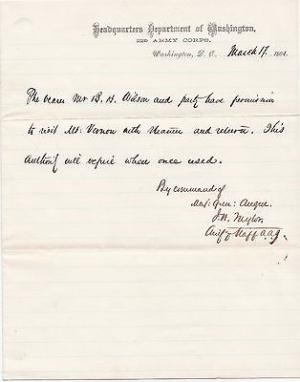 Headquarters Department of Washington,
22D ARMY CORPS,
Washington, D. C. March 17, 186
The bearer Mr B. B. Wilson and party have permission
to visit Mt: Vernon with Steamer and return. This
authority will expire when once used.
By command of
Maj: Gen: Augur.
J.H. Taylor
Chief of Staff A.A.G.